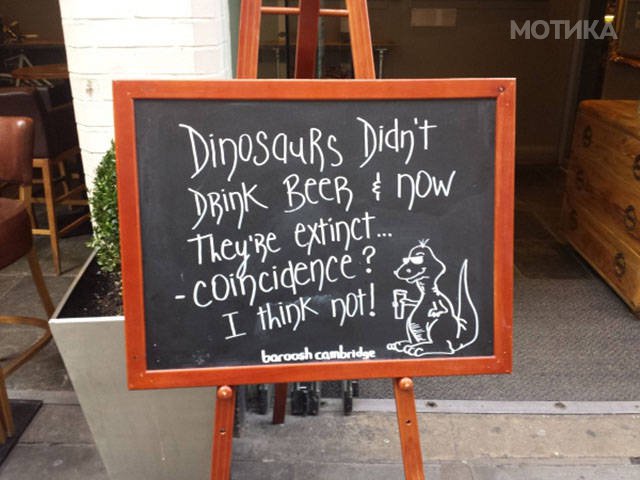 МОТИКА
Dinosaurs Didn't
Drink Beer & now
They're extinct...
- coincidence?
I think not!
baroosh cambridge